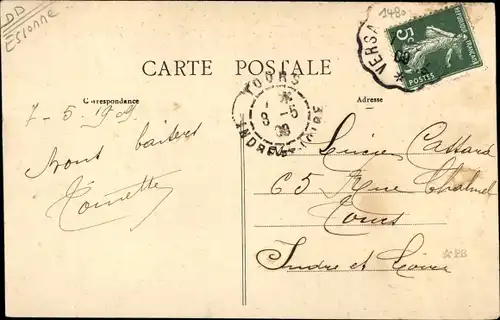 DD
Essonne
1480
RÉPUBLIQUE FRANÇAISE
5c
POSTES
VERSA
CARTE POSTALE
Correspondance
Adresse
TOURS
8 -5
09
INDRE-ET-LOIRE
7-5-1909
Bons baisers
Lucien
65 Rue
Tours
Indre et Loire